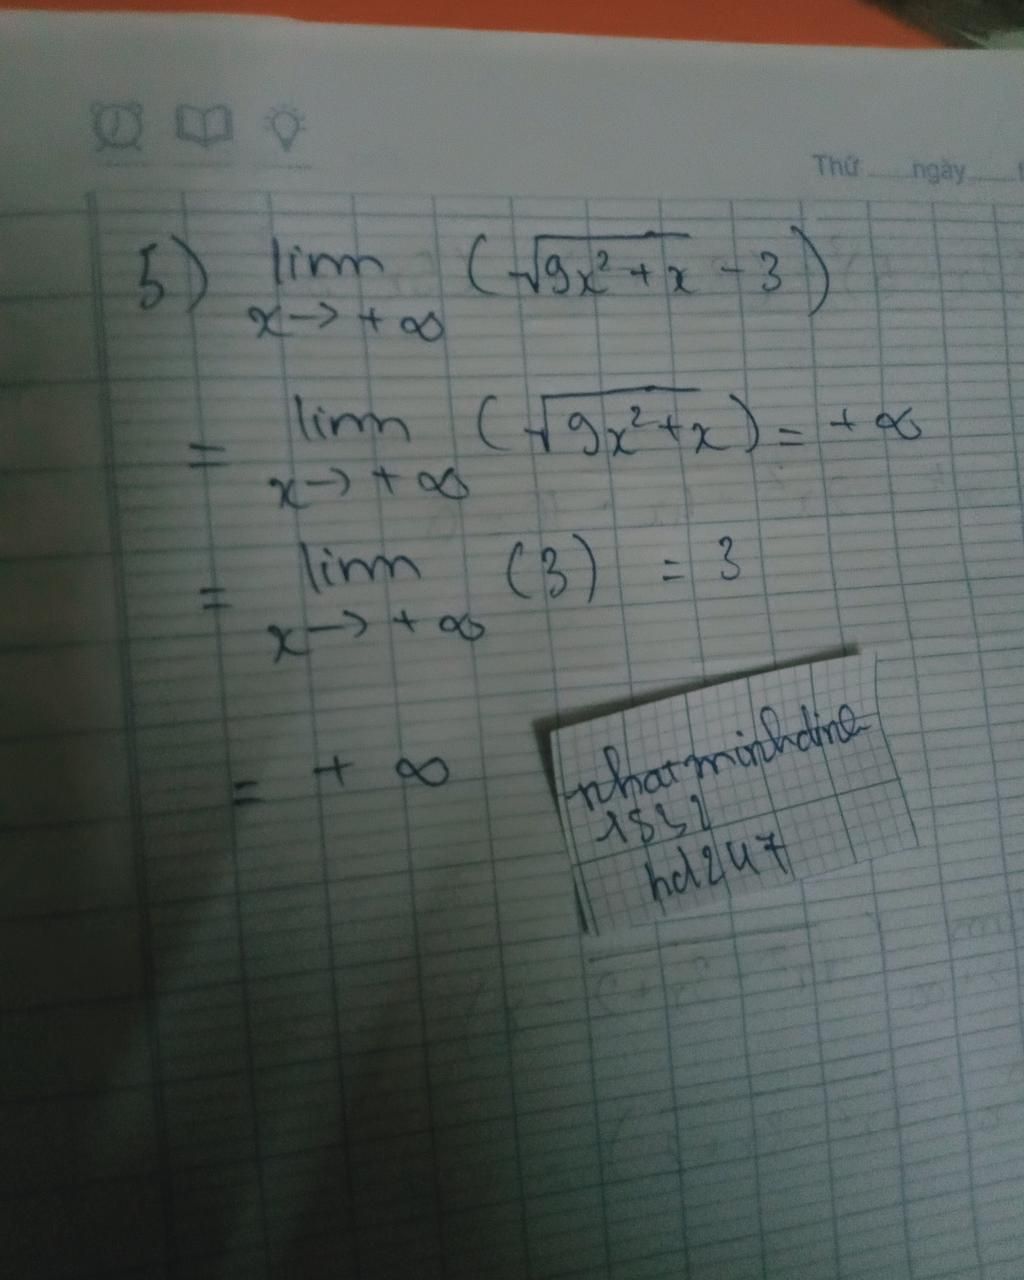 Thứ ngày
5) lim (√9x² + x - 3)
x → + ∞
= lim (√9x² + x) = + ∞
x → + ∞
= lim (3) = 3
x → + ∞
= + ∞
nhatminhdine
1832
hd247